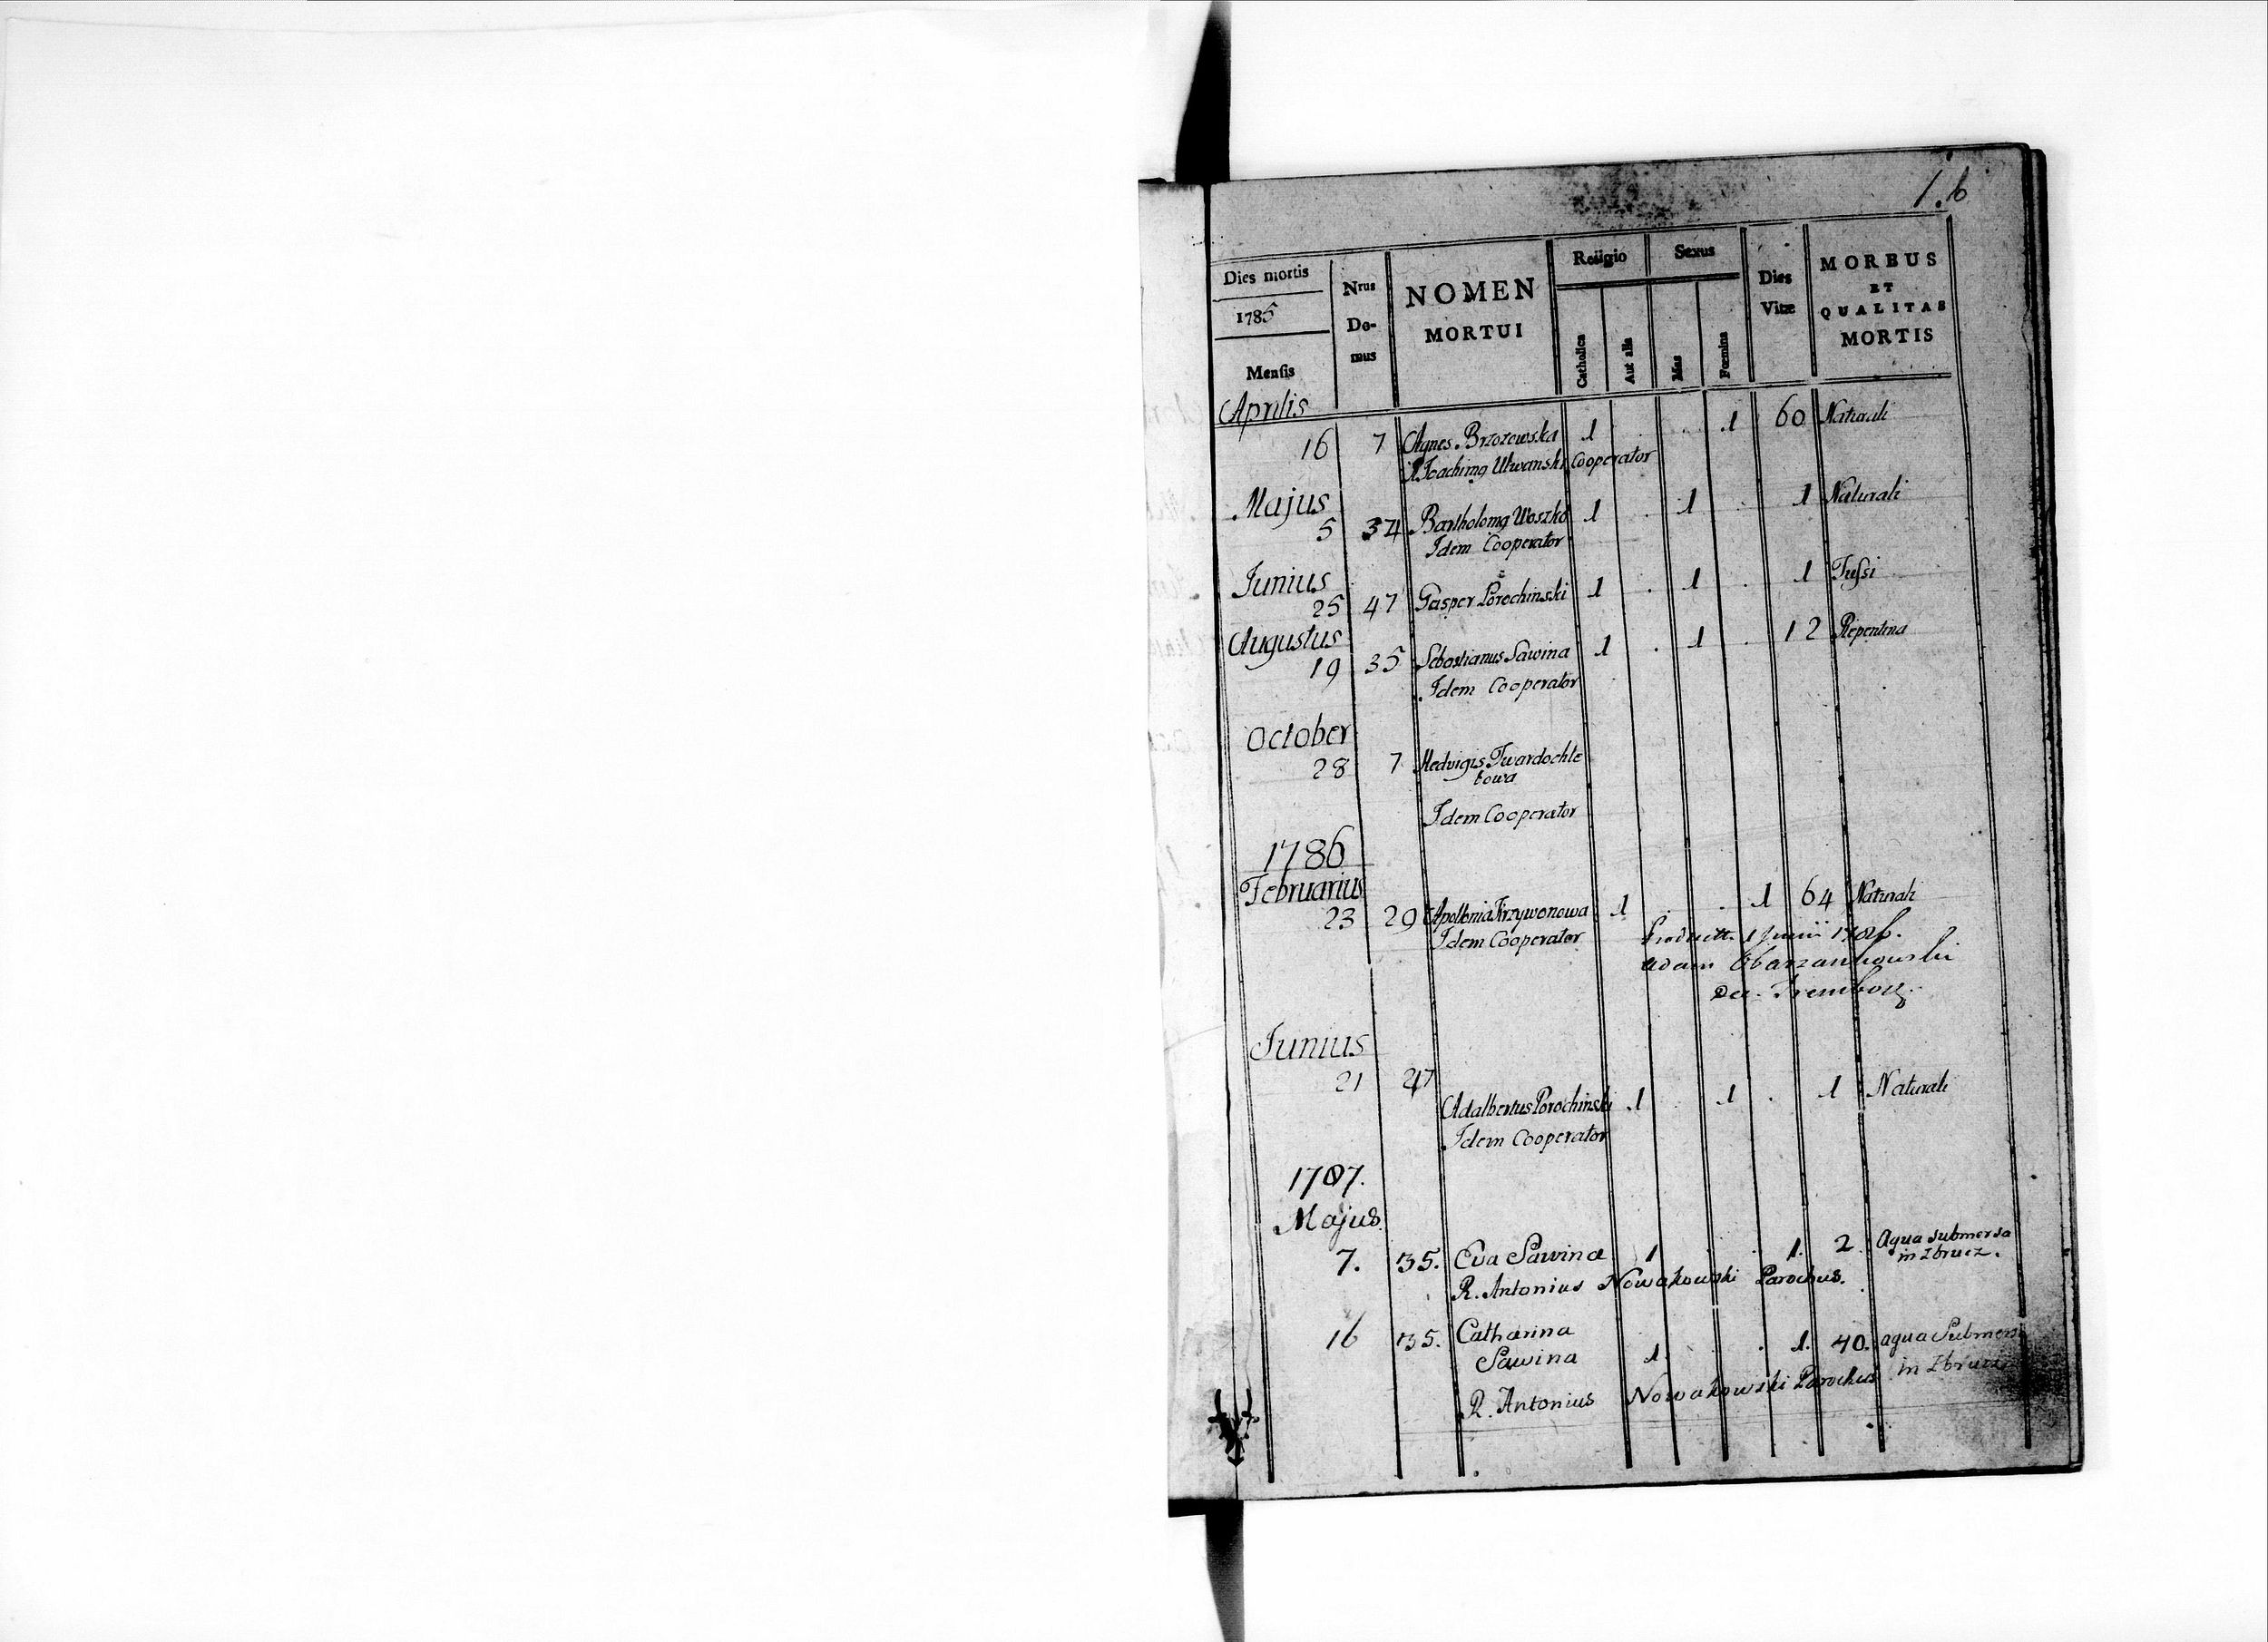 1.6
Dies mortis
1785
Mensis
Nrus
Do-
mus
NOMEN
MORTUI
Religio
Catholica
Aut alia
Sexus
Mas
Fœmina
Dies
Vitæ
MORBUS
ET
QUALITAS
MORTIS
Aprilis
16 7 Agnes Brzozowska 1 . . 1 60 Naturali
Cooperator
Majus
5 34 Bartholomg Woszko 1 . 1 . 1 Naturali
Idem Cooperator
Junius
25 47 Gasper Porochinski 1 . 1 . 1 Tussi
Augustus
19 35 Sebastianus Sawina 1 . 1 . 12 Repentina
Idem Cooperator
October
28 7 Hedvigis Twardochle
bowa
Idem Cooperator
1786
Februarius
23 29 Apollonia Krzywonowa 1 . . 1 64 Naturali
Idem Cooperator
1 Junii 1786.
Adam Obarzankowski
Junius
21 47
Adalbertus Porochinski 1 . 1 . 1 Naturali
Idem Cooperator
1787.
Majus.
7. 35. Eva Sawina 1 . . 1. 2. Aqua submersa
in Zbrucz.
R. Antonius Nowakowski Parochus.
16 35. Catharina
Sawina 1. . . 1. 40. aqua Submers
in Zbrucz
R. Antonius Nowakowski Parochus